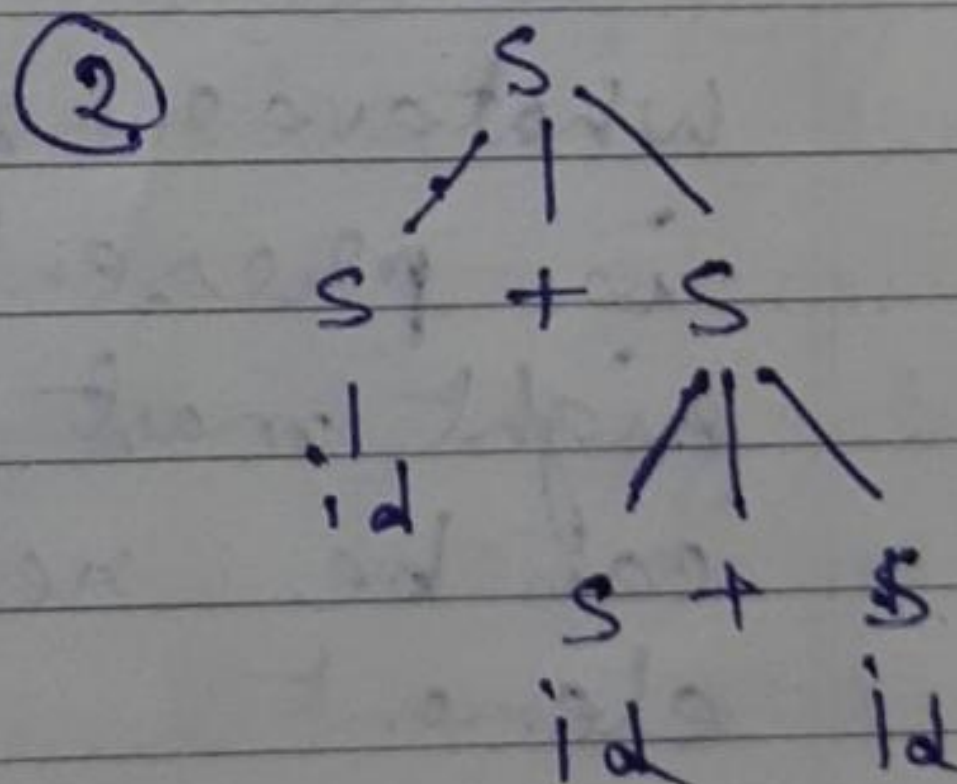 2 S
S + S
id
S + S
id id